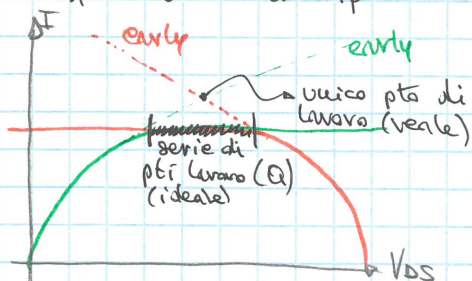 I
early
early
unico pto di
lavoro (reale)
serie di
pti lavoro (Q)
(ideale)
VDS